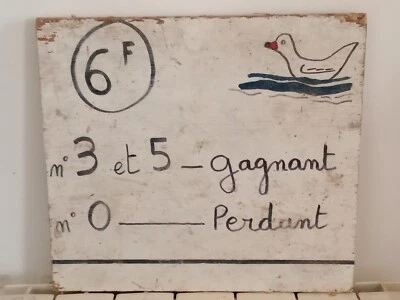 6F
n° 3 et 5 – gagnant
n° 0 —— Perdant